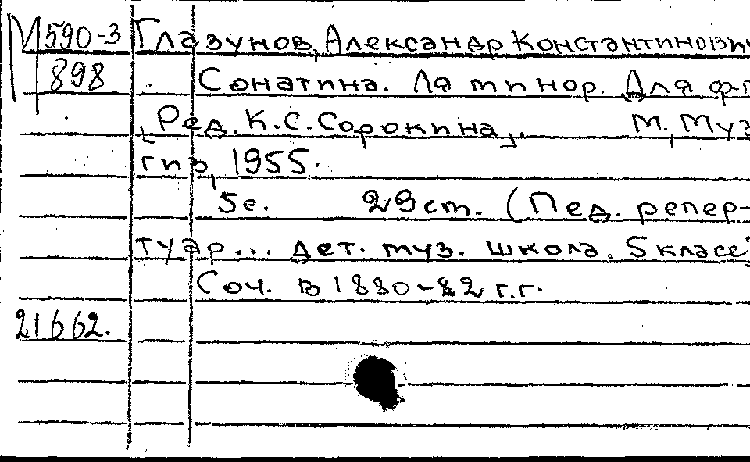 М590-3 Глазунов, Александр Константинович
898 Сонатина. Ля минор. Для ф-п
[Ред. К.С. Сорокина]. М, Муз
гиз, 1955.
5с. 29 ст. (Пед. репер-
туар... дет. муз. школа. 5 класс)
Соч. в 1880-82 г.г.
21662.